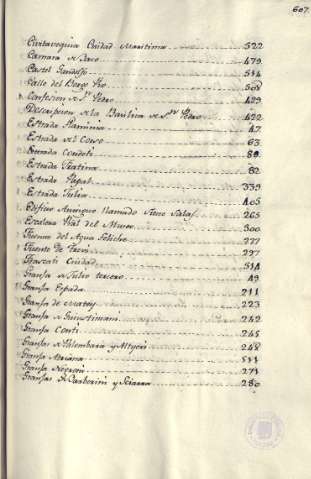 607.
Civitavequia Ciudad Maritima 322
Camara de Baco 479
Castel Gandolfo 514
Calle del Borgo Pio 508
Confesion de Sn. Pedro 429
Descripcion de la Basilica de Sn. Pedro 422
Estrada Flaminia 47
Estrada del Corso 63
Estrada Condoti 89
Estrada Paulina 82
Estrada Papal 339
Estrada Julia 405
Edificio Antiguo llamado 265
Escalera del Museo 300
Fuente del Agua Feliche 277
Fuente de Trevi 297
Frascati Ciudad 514
Granja de Julio tercero 49
Granja Espada 211
Granja de Matey 223
Granja de Giustiniani 242
Granja Conti 245
Granjas de Palombara y Altieri 248
Granja 511
Granja Negroni 271
Granjas de Barberini y Sciarra 280